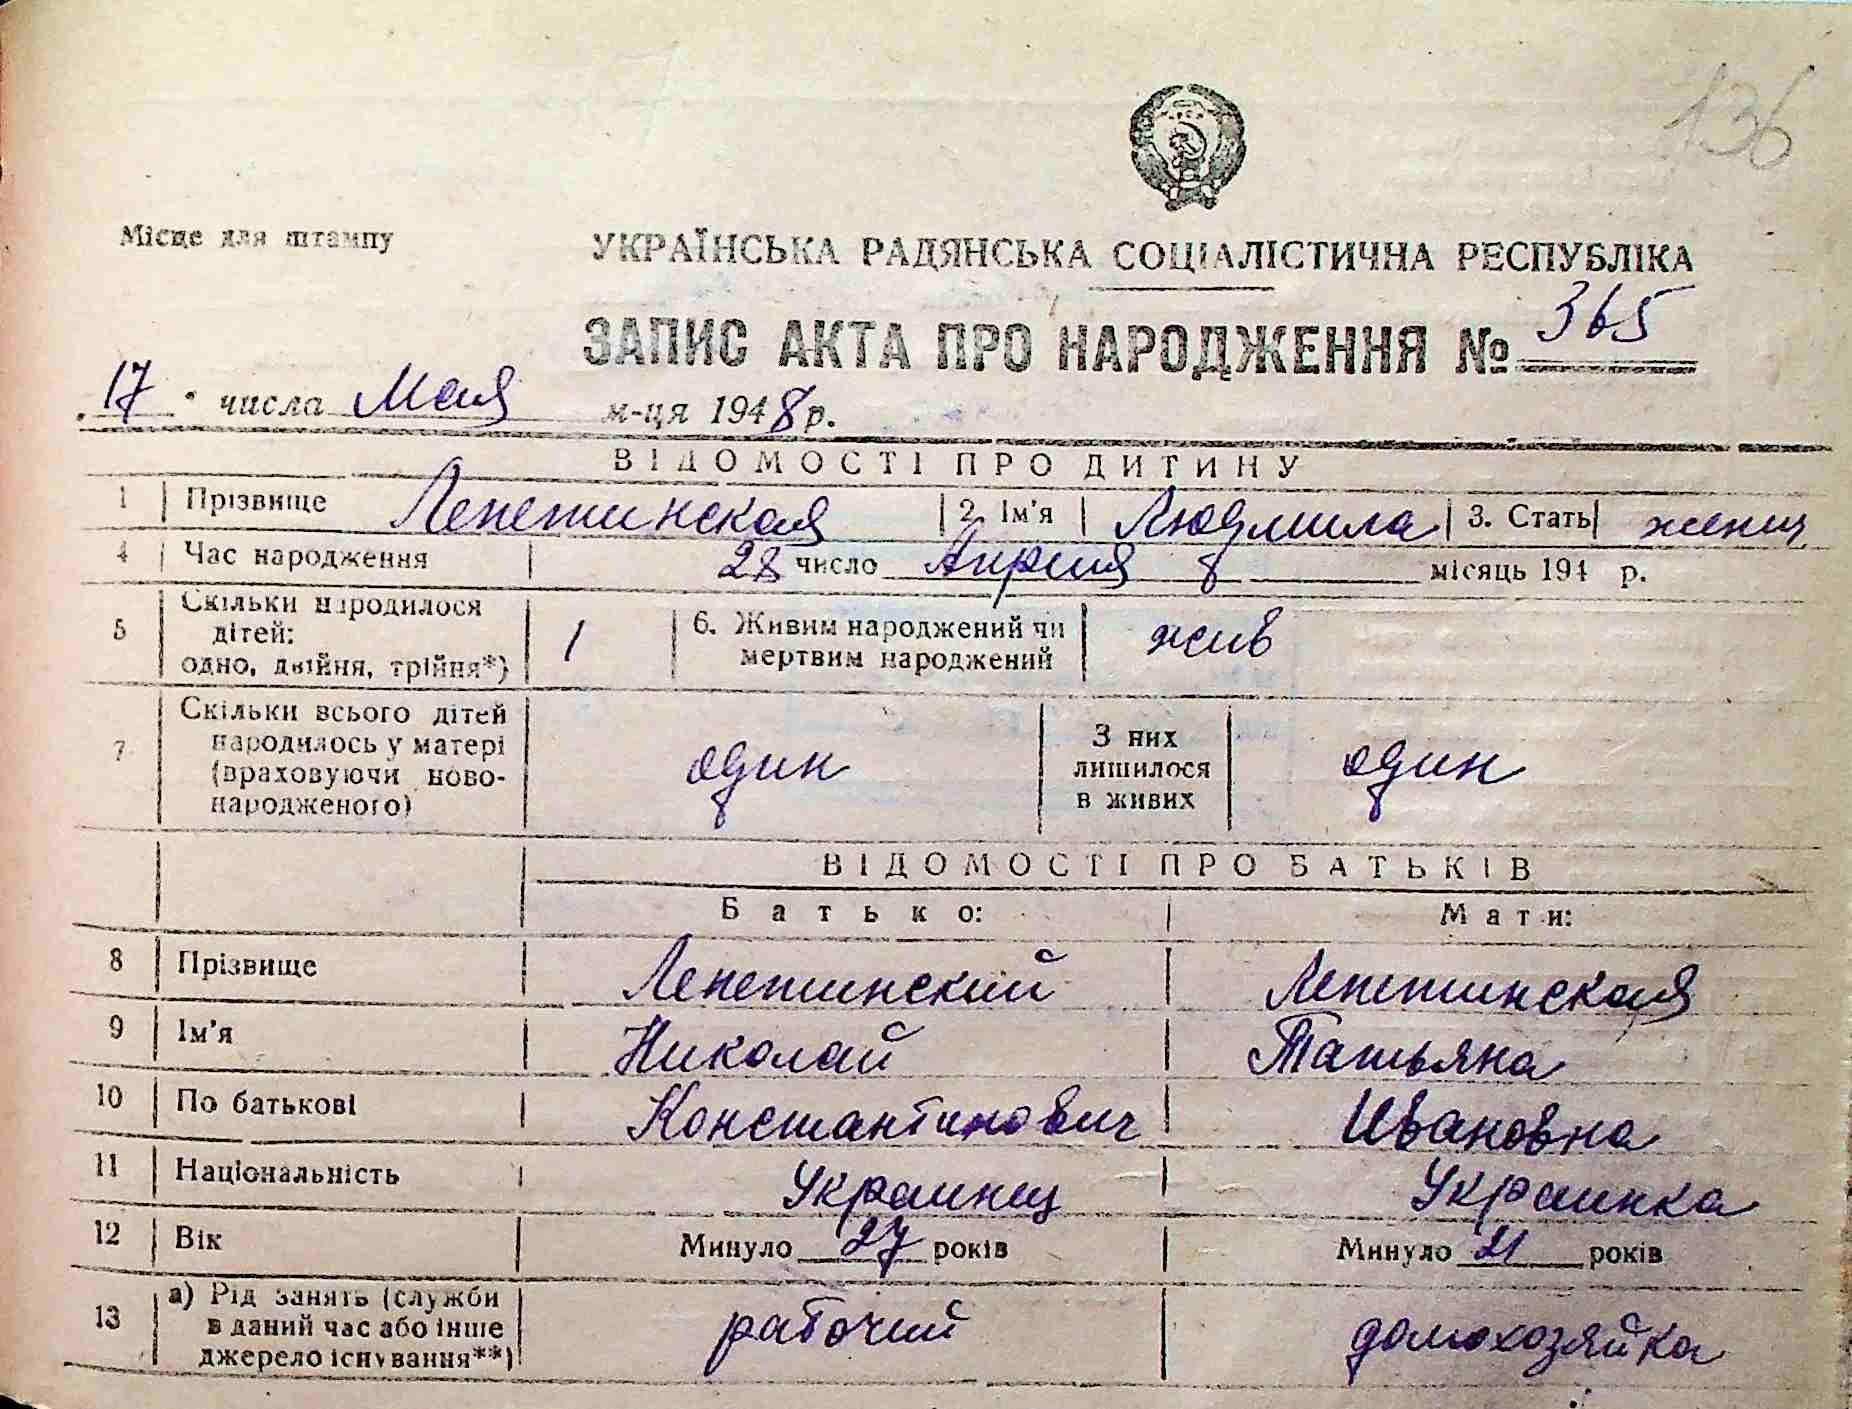 136
Місце для штампу
УКРАЇНСЬКА РАДЯНСЬКА СОЦІАЛІСТИЧНА РЕСПУБЛІКА
ЗАПИС АКТА ПРО НАРОДЖЕННЯ № 365
17 числа Мая м-ця 1948 р.
ВІДОМОСТІ ПРО ДИТИНУ
1 Прізвище Лепетинская 2. Ім'я Людмила 3. Стать женщ
4 Час народження 28 число Апреля 8 місяць 194 р.
5 Скільки народилося дітей: одно, двійня, трійня*) 1 6. Живим народжений чи мертвим народжений жив
7 Скільки всього дітей народилось у матері (враховуючи ново-народженого) один З них лишилося в живих один
ВІДОМОСТІ ПРО БАТЬКІВ
Батько: Мати:
8 Прізвище Лепетинский Лепетинская
9 Ім'я Николай Татьяна
10 По батькові Константинович Ивановна
11 Національність Украинец Украинка
12 Вік Минуло 27 років Минуло 21 років
13 а) Рід занять (служби в даний час або інше джерело існування**) рабочий домохозяйка